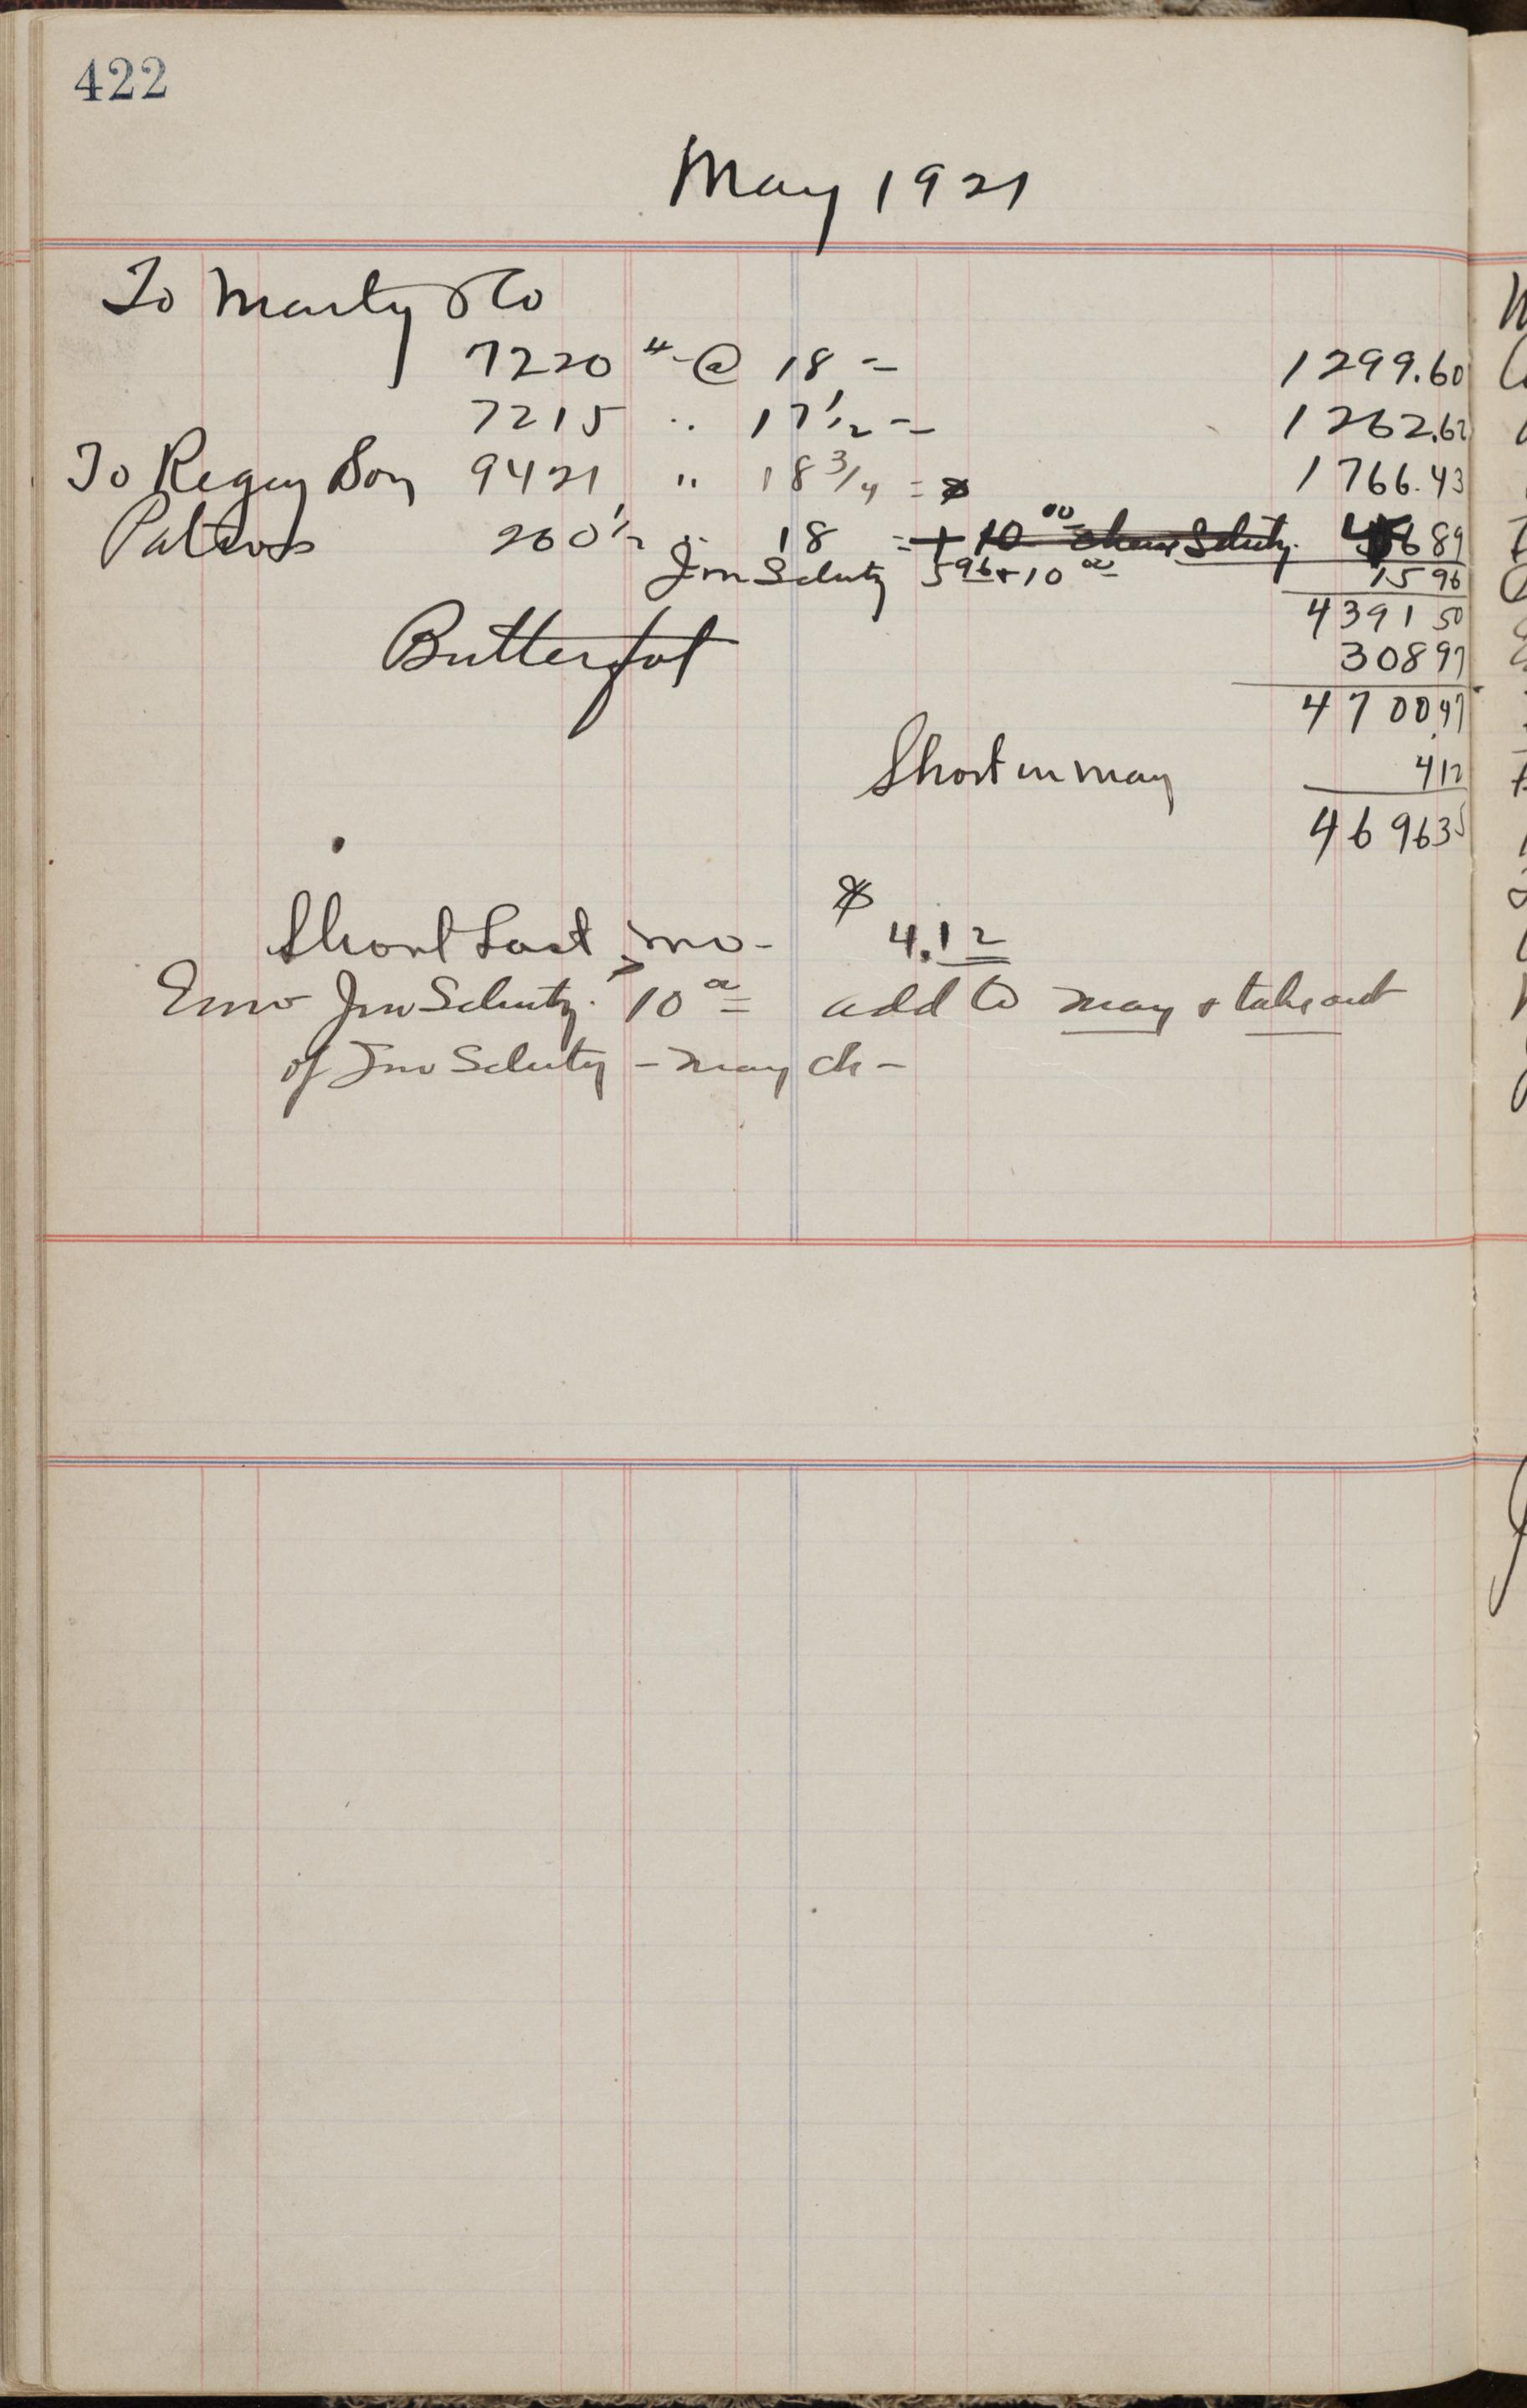 422
May 1921
To Marty & Co
7220 # @ 18 = 1299.60
7215 " 17 1/2 = 1262.62
To Regey Boy 9421 " 18 3/4 = $ 1766.43
Patrons 260 1/2 " 18 = + 10 00 Schutz 4689
Jno Schutz 5 96 + 10 00 15 96
4391 50
308 97
4700.47
Butterfat
Short in may 4 12
4696 35
$
Short Last mo - 4.12
Error Jno Schutz. 10 00 = add to may & take out
of Jno Schutz - may ch -